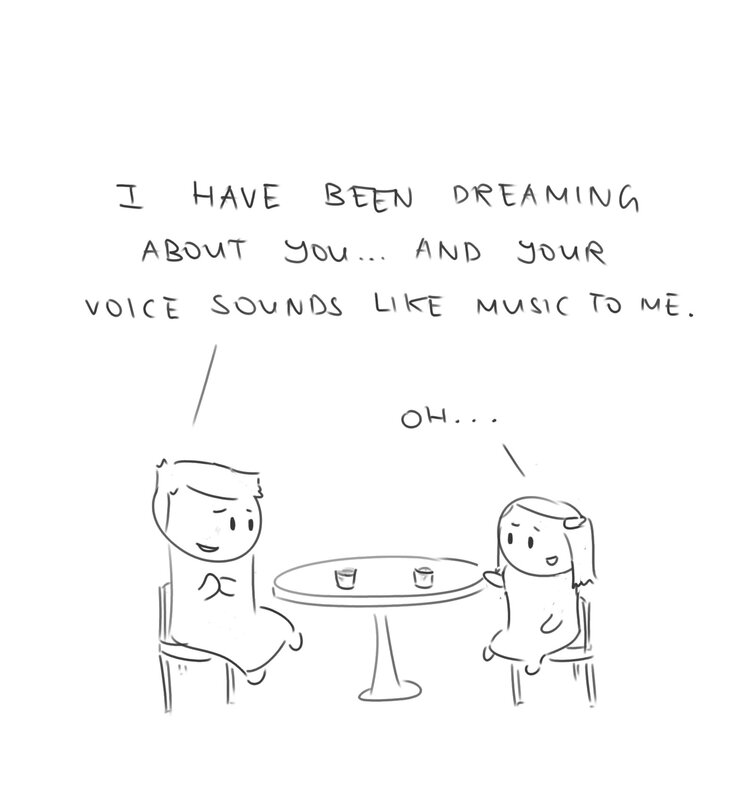 I HAVE BEEN DREAMING
ABOUT YOU... AND YOUR
VOICE SOUNDS LIKE MUSIC TO ME.
OH...